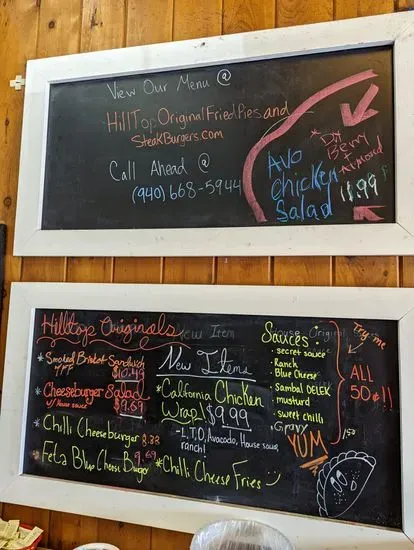 View Our Menu @
HillTop Original Fried Pies and
SteakBurgers.com
Call Ahead @
(940) 668-5944
Avo
Chicken
Salad
* DH
Berry
+
Almond
11.99
Hilltop Originals
* Smoked Brisket Sandwich
$10.49
* Cheeseburger Salad
w/ House sauce $9.69
* Chilli Cheeseburger 8.38
* Feta Blue Cheese Burger 9.69
New Item
New Items
* California Chicken
Wrap! $9.99
-L,T,O, Avacado, House sauce,
ranch!
* Chilli Cheese Fries
House Original
Sauces:
• secret sauce
• Ranch
• Blue Cheese
• Sambal OELEK
• mustard
• sweet chilli
• Gravy
1.50
YUM
Try me
ALL
50¢!!